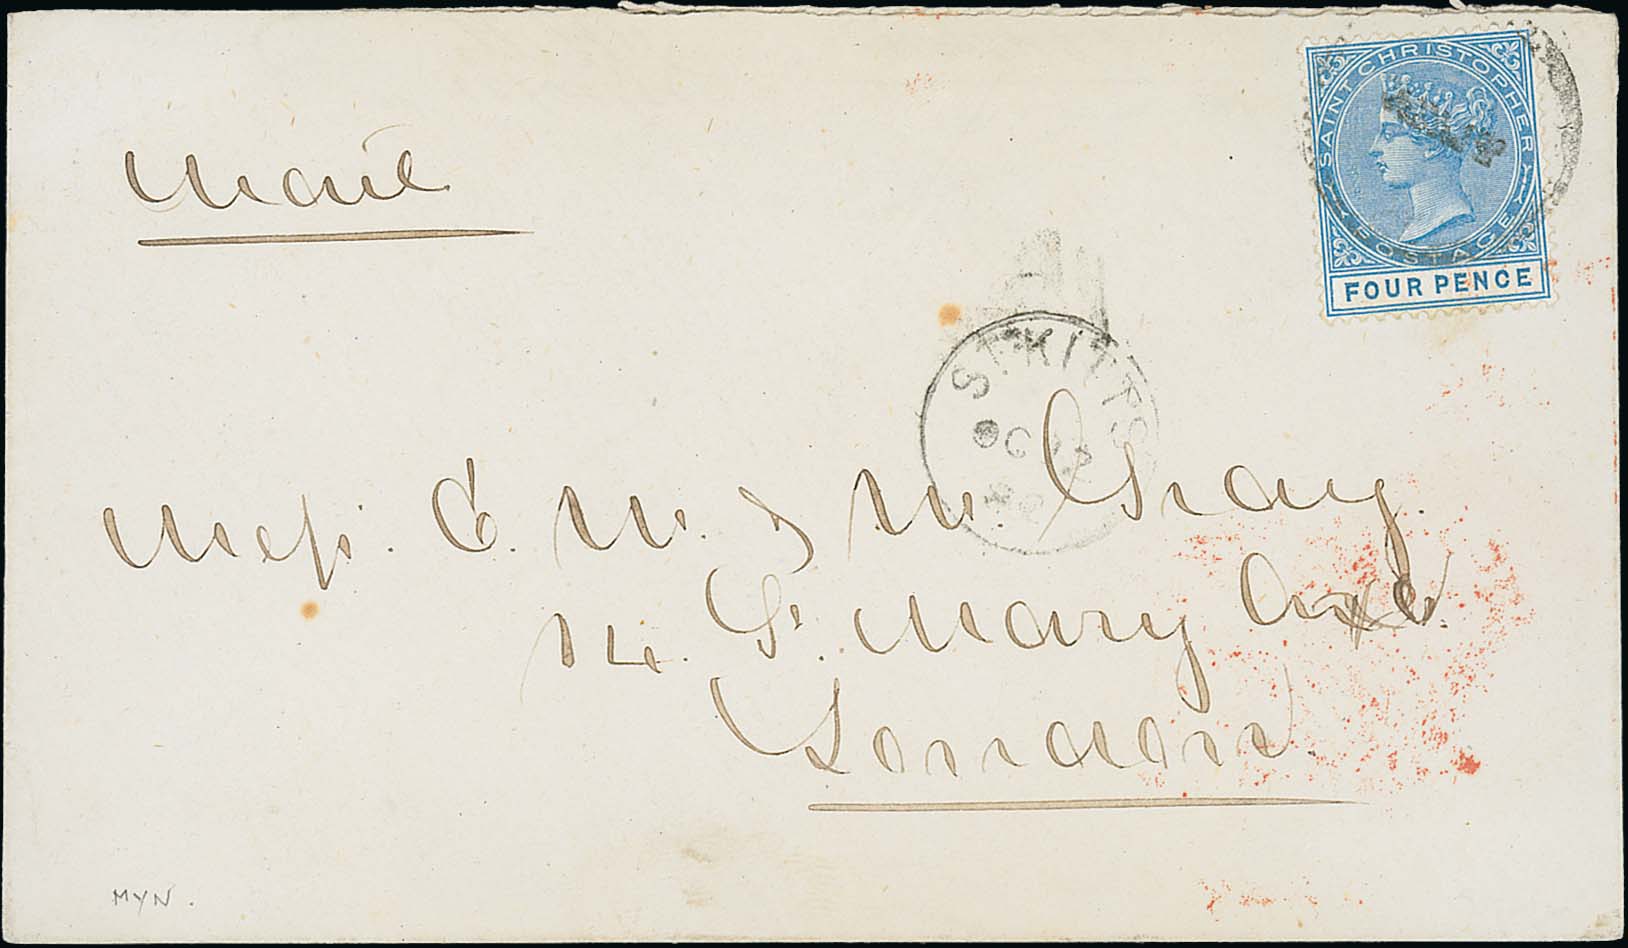 Mail
SAINT CHRISTOPHER
POSTAGE
FOUR PENCE
ST KITTS
OC
82
Mess. C. W. & W. Gray.
14. St. Mary Axe.
London.
MYN.